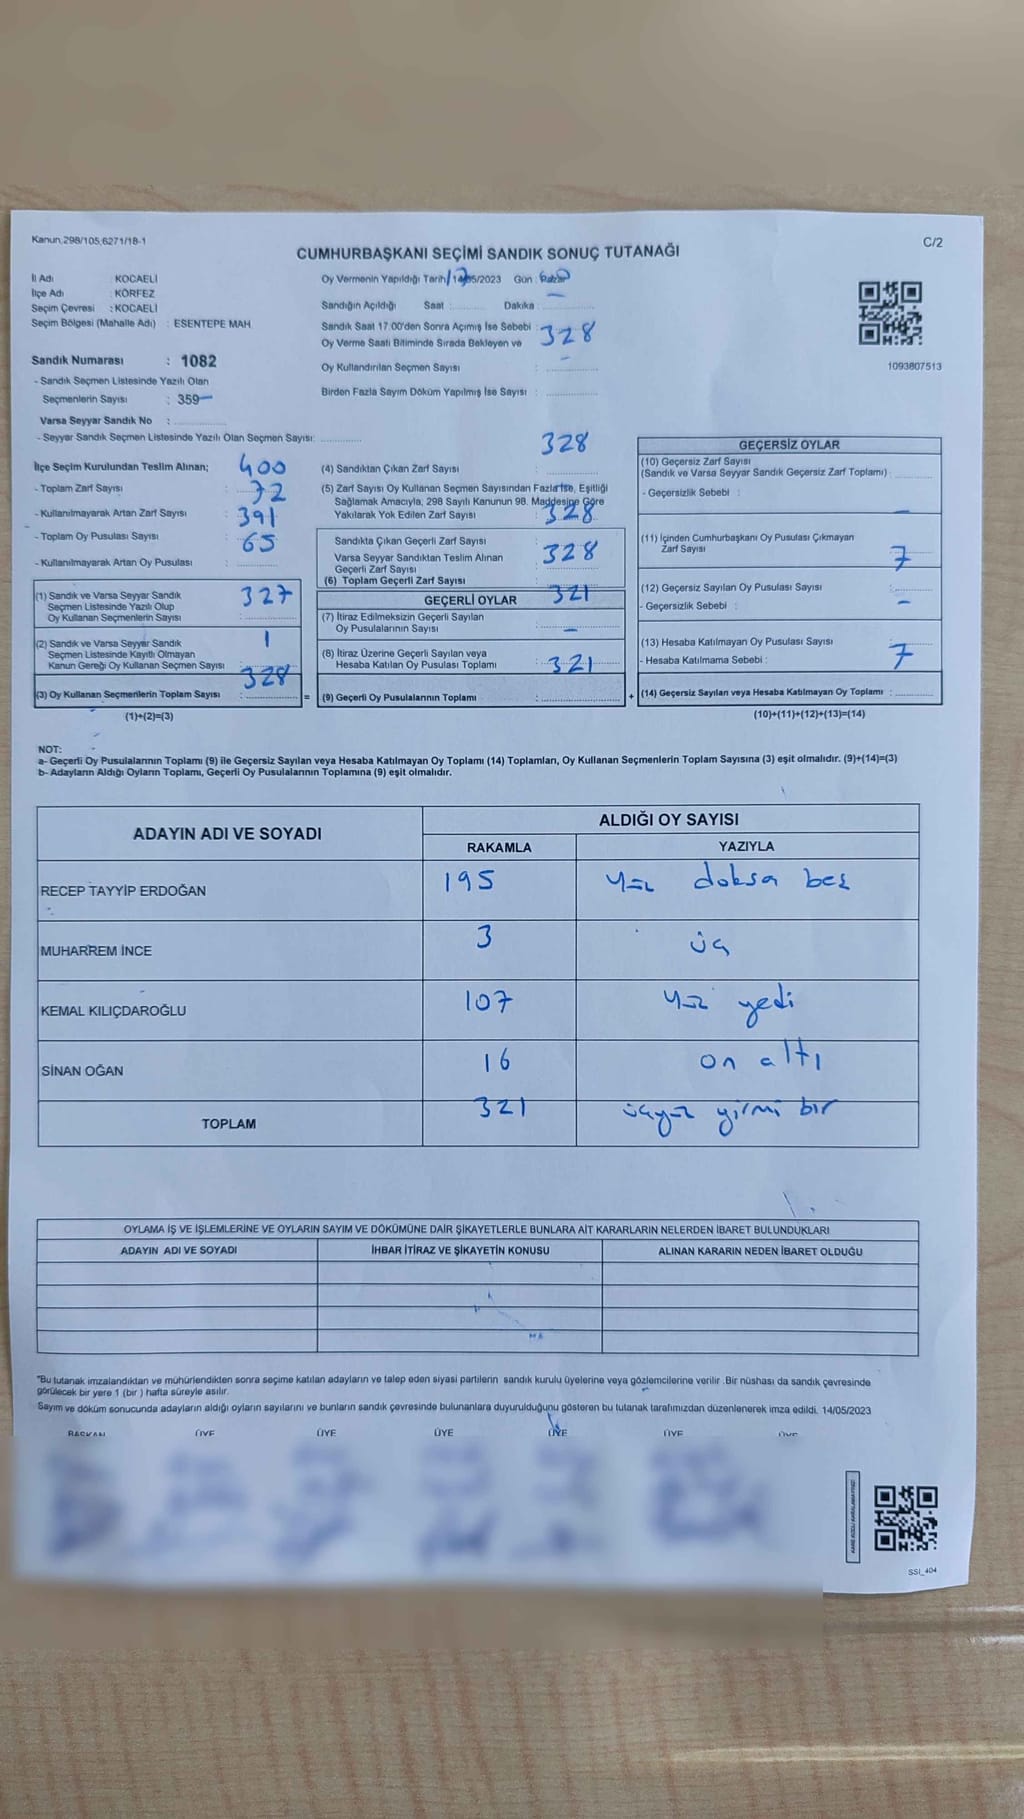 Kanun,298/105,6271/18-1
C/2
CUMHURBAŞKANI SEÇİMİ SANDIK SONUÇ TUTANAĞI
İl Adı : KOCAELİ
İlçe Adı : KÖRFEZ
Seçim Çevresi : KOCAELİ
Seçim Bölgesi (Mahalle Adı) : ESENTEPE MAH.
Sandık Numarası : 1082
- Sandık Seçmen Listesinde Yazılı Olan
Seçmenlerin Sayısı : 359
Varsa Seyyar Sandık No :
- Seyyar Sandık Seçmen Listesinde Yazılı Olan Seçmen Sayısı:
Oy Vermenin Yapıldığı Tarih 14/05/2023 Gün : Pazar
Sandığın Açıldığı Saat Dakika
Sandık Saat 17:00'den Sonra Açımış İse Sebebi :
Oy Verme Saati Bitiminde Sırada Bekleyen ve 328
Oy Kullandırılan Seçmen Sayısı :
Birden Fazla Sayım Döküm Yapılmış İse Sayısı :
1093807513
İlçe Seçim Kurulundan Teslim Alınan; 400
- Toplam Zarf Sayısı : 72
- Kullanılmayarak Artan Zarf Sayısı : 391
- Toplam Oy Pusulası Sayısı : 65
- Kullanılmayarak Artan Oy Pusulası :
(1) Sandık ve Varsa Seyyar Sandık 327
Seçmen Listesinde Yazılı Olup
Oy Kullanan Seçmenlerin Sayısı :
(2) Sandık ve Varsa Seyyar Sandık 1
Seçmen Listesinde Kayıtlı Olmayan
Kanun Gereği Oy Kullanan Seçmen Sayısı :
328
(3) Oy Kullanan Seçmenlerin Toplam Sayısı :
(1)+(2)=(3)
328
(4) Sandıktan Çıkan Zarf Sayısı :
(5) Zarf Sayısı Oy Kullanan Seçmen Sayısından Fazla İse, Eşitliği
Sağlamak Amacıyla, 298 Sayılı Kanunun 98. Maddesine Göre
Yakılarak Yok Edilen Zarf Sayısı 328
Sandıkta Çıkan Geçerli Zarf Sayısı :
Varsa Seyyar Sandıktan Teslim Alınan 328
Geçerli Zarf Sayısı
(6) Toplam Geçerli Zarf Sayısı :
GEÇERLİ OYLAR 321
(7) İtiraz Edilmeksizin Geçerli Sayılan
Oy Pusulalarının Sayısı : –
(8) İtiraz Üzerine Geçerli Sayılan veya
Hesaba Katılan Oy Pusulası Toplamı : 321
= (9) Geçerli Oy Pusulalarının Toplamı :
GEÇERSİZ OYLAR
(10) Geçersiz Zarf Sayısı
(Sandık ve Varsa Seyyar Sandık Geçersiz Zarf Toplamı) :
- Geçersizlik Sebebi :
–
(11) İçinden Cumhurbaşkanı Oy Pusulası Çıkmayan
Zarf Sayısı 7
(12) Geçersiz Sayılan Oy Pusulası Sayısı :
- Geçersizlik Sebebi : –
(13) Hesaba Katılmayan Oy Pusulası Sayısı :
- Hesaba Katılmama Sebebi : 7
+ (14) Geçersiz Sayılan veya Hesaba Katılmayan Oy Toplamı :
(10)+(11)+(12)+(13)=(14)
NOT:
a- Geçerli Oy Pusulalarının Toplamı (9) ile Geçersiz Sayılan veya Hesaba Katılmayan Oy Toplamı (14) Toplamları, Oy Kullanan Seçmenlerin Toplam Sayısına (3) eşit olmalıdır. (9)+(14)=(3)
b- Adayların Aldığı Oyların Toplamı, Geçerli Oy Pusulalarının Toplamına (9) eşit olmalıdır.
ADAYIN ADI VE SOYADI
ALDIĞI OY SAYISI
RAKAMLA YAZIYLA
RECEP TAYYİP ERDOĞAN 195 yüz doksa beş
MUHARREM İNCE 3 üç
KEMAL KILIÇDAROĞLU 107 yüz yedi
SİNAN OĞAN 16 on altı
TOPLAM 321 üçyüz yirmi bir
OYLAMA İŞ VE İŞLEMLERİNE VE OYLARIN SAYIM VE DÖKÜMÜNE DAİR ŞİKAYETLERLE BUNLARA AİT KARARLARIN NELERDEN İBARET BULUNDUKLARI
ADAYIN ADI VE SOYADI İHBAR İTİRAZ VE ŞİKAYETİN KONUSU ALINAN KARARIN NEDEN İBARET OLDUĞU
"Bu tutanak imzalandıktan ve mühürlendikten sonra seçime katılan adayların ve talep eden siyasi partilerin sandık kurulu üyelerine veya gözlemcilerine verilir .Bir nüshası da sandık çevresinde
görülecek bir yere 1 (bir ) hafta süreyle asılır.
Sayım ve döküm sonucunda adayların aldığı oyların sayılarını ve bunların sandık çevresinde bulunanlara duyurulduğunu gösteren bu tutanak tarafımızdan düzenlenerek imza edildi. 14/05/2023
BAŞKAN ÜYE ÜYE ÜYE ÜYE ÜYE ÜYE
SSI_404